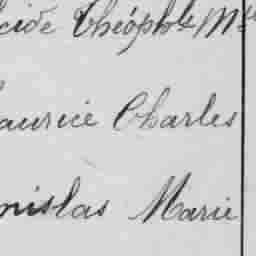 cide Théophile Mie
aurice Charles
nislas Marie